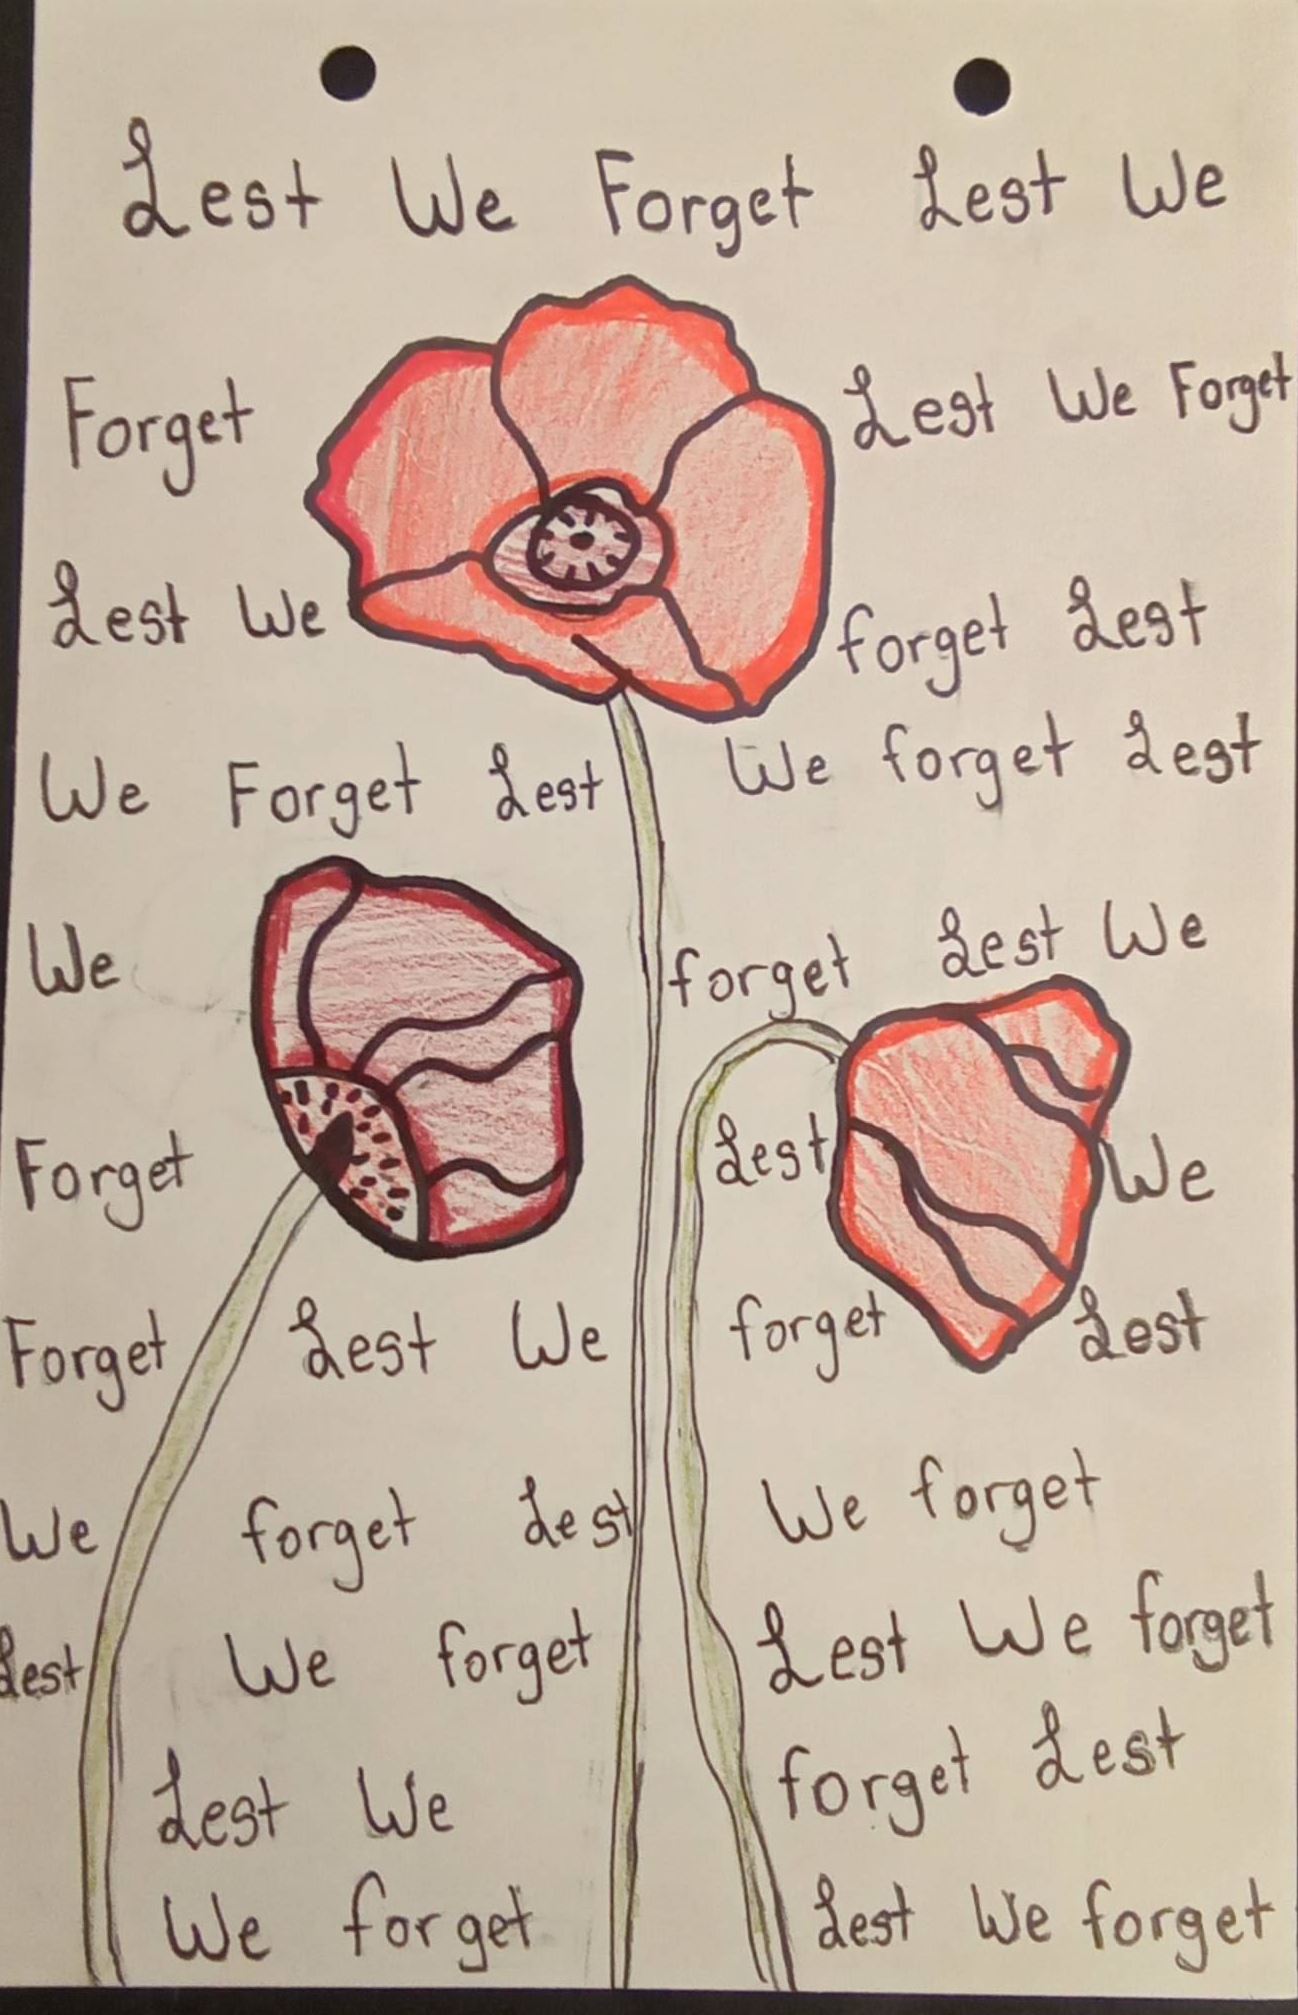 Lest We Forget Lest We
Forget Lest We Forget
Lest We forget Lest
We Forget Lest We forget Lest
We forget Lest We
Forget Lest We
Forget Lest We forget Lest
We forget Lest We forget
Lest We forget Lest We forget
Lest We forget Lest
We forget Lest We forget